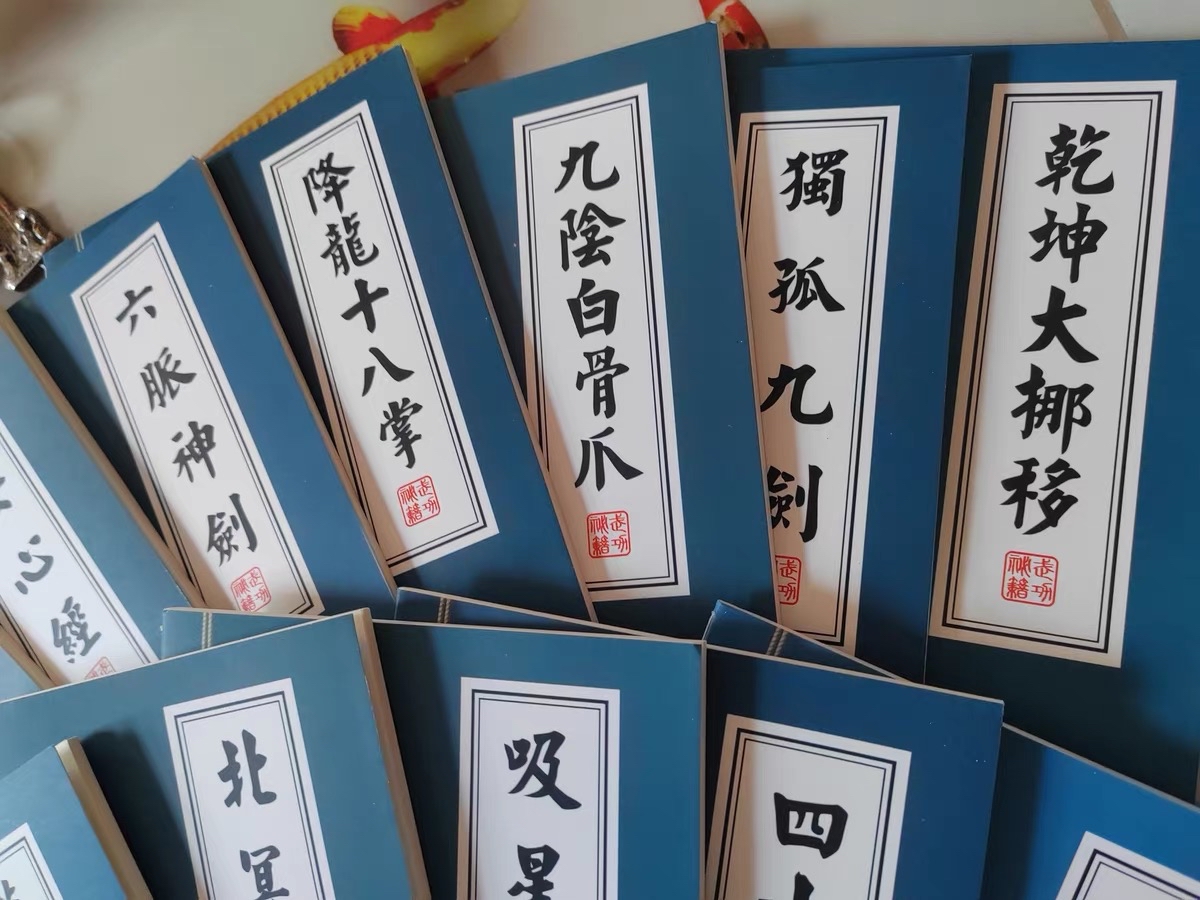 心經
六脈神劍
武功秘籍
降龍十八掌
武功秘籍
九陰白骨爪
武功秘籍
獨孤九劍
武功
乾坤大挪移
武功秘籍
北冥
吸星
四十